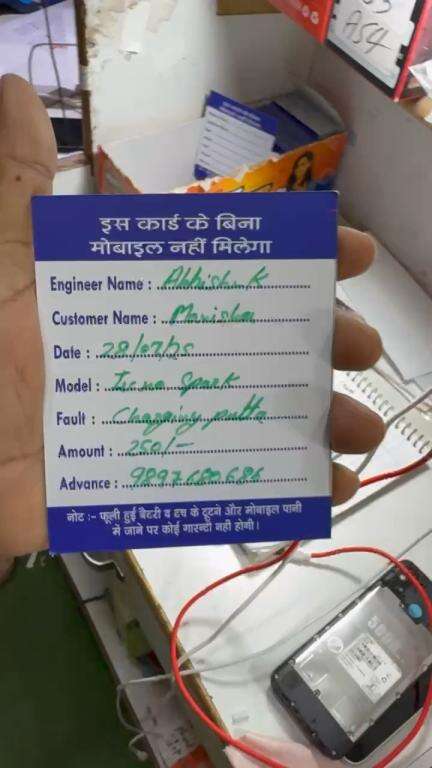 A54
इस कार्ड के बिना
मोबाइल नहीं मिलेगा
Engineer Name : Abhishek
Customer Name : Manisha
Date : 28/07/25
Model : Tecno Spark
Fault : Charging putta
Amount : 250/-
Advance : 9897680686
नोट :- फूली हुई बैटरी व टच के टूटने और मोबाइल पानी
में जाने पर कोई गारन्टी नही होगी।